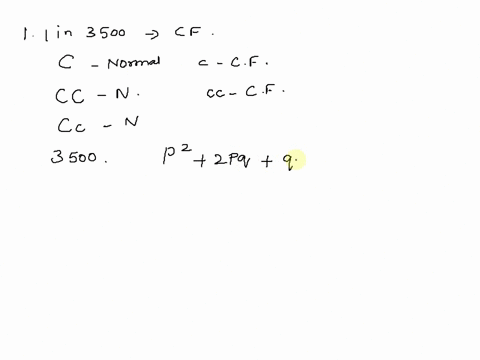 1. 1 in 3500 → CF.
C - Normal c - C.F.
CC - N. cc - C.F.
Cc - N
3500. p² + 2pq + q